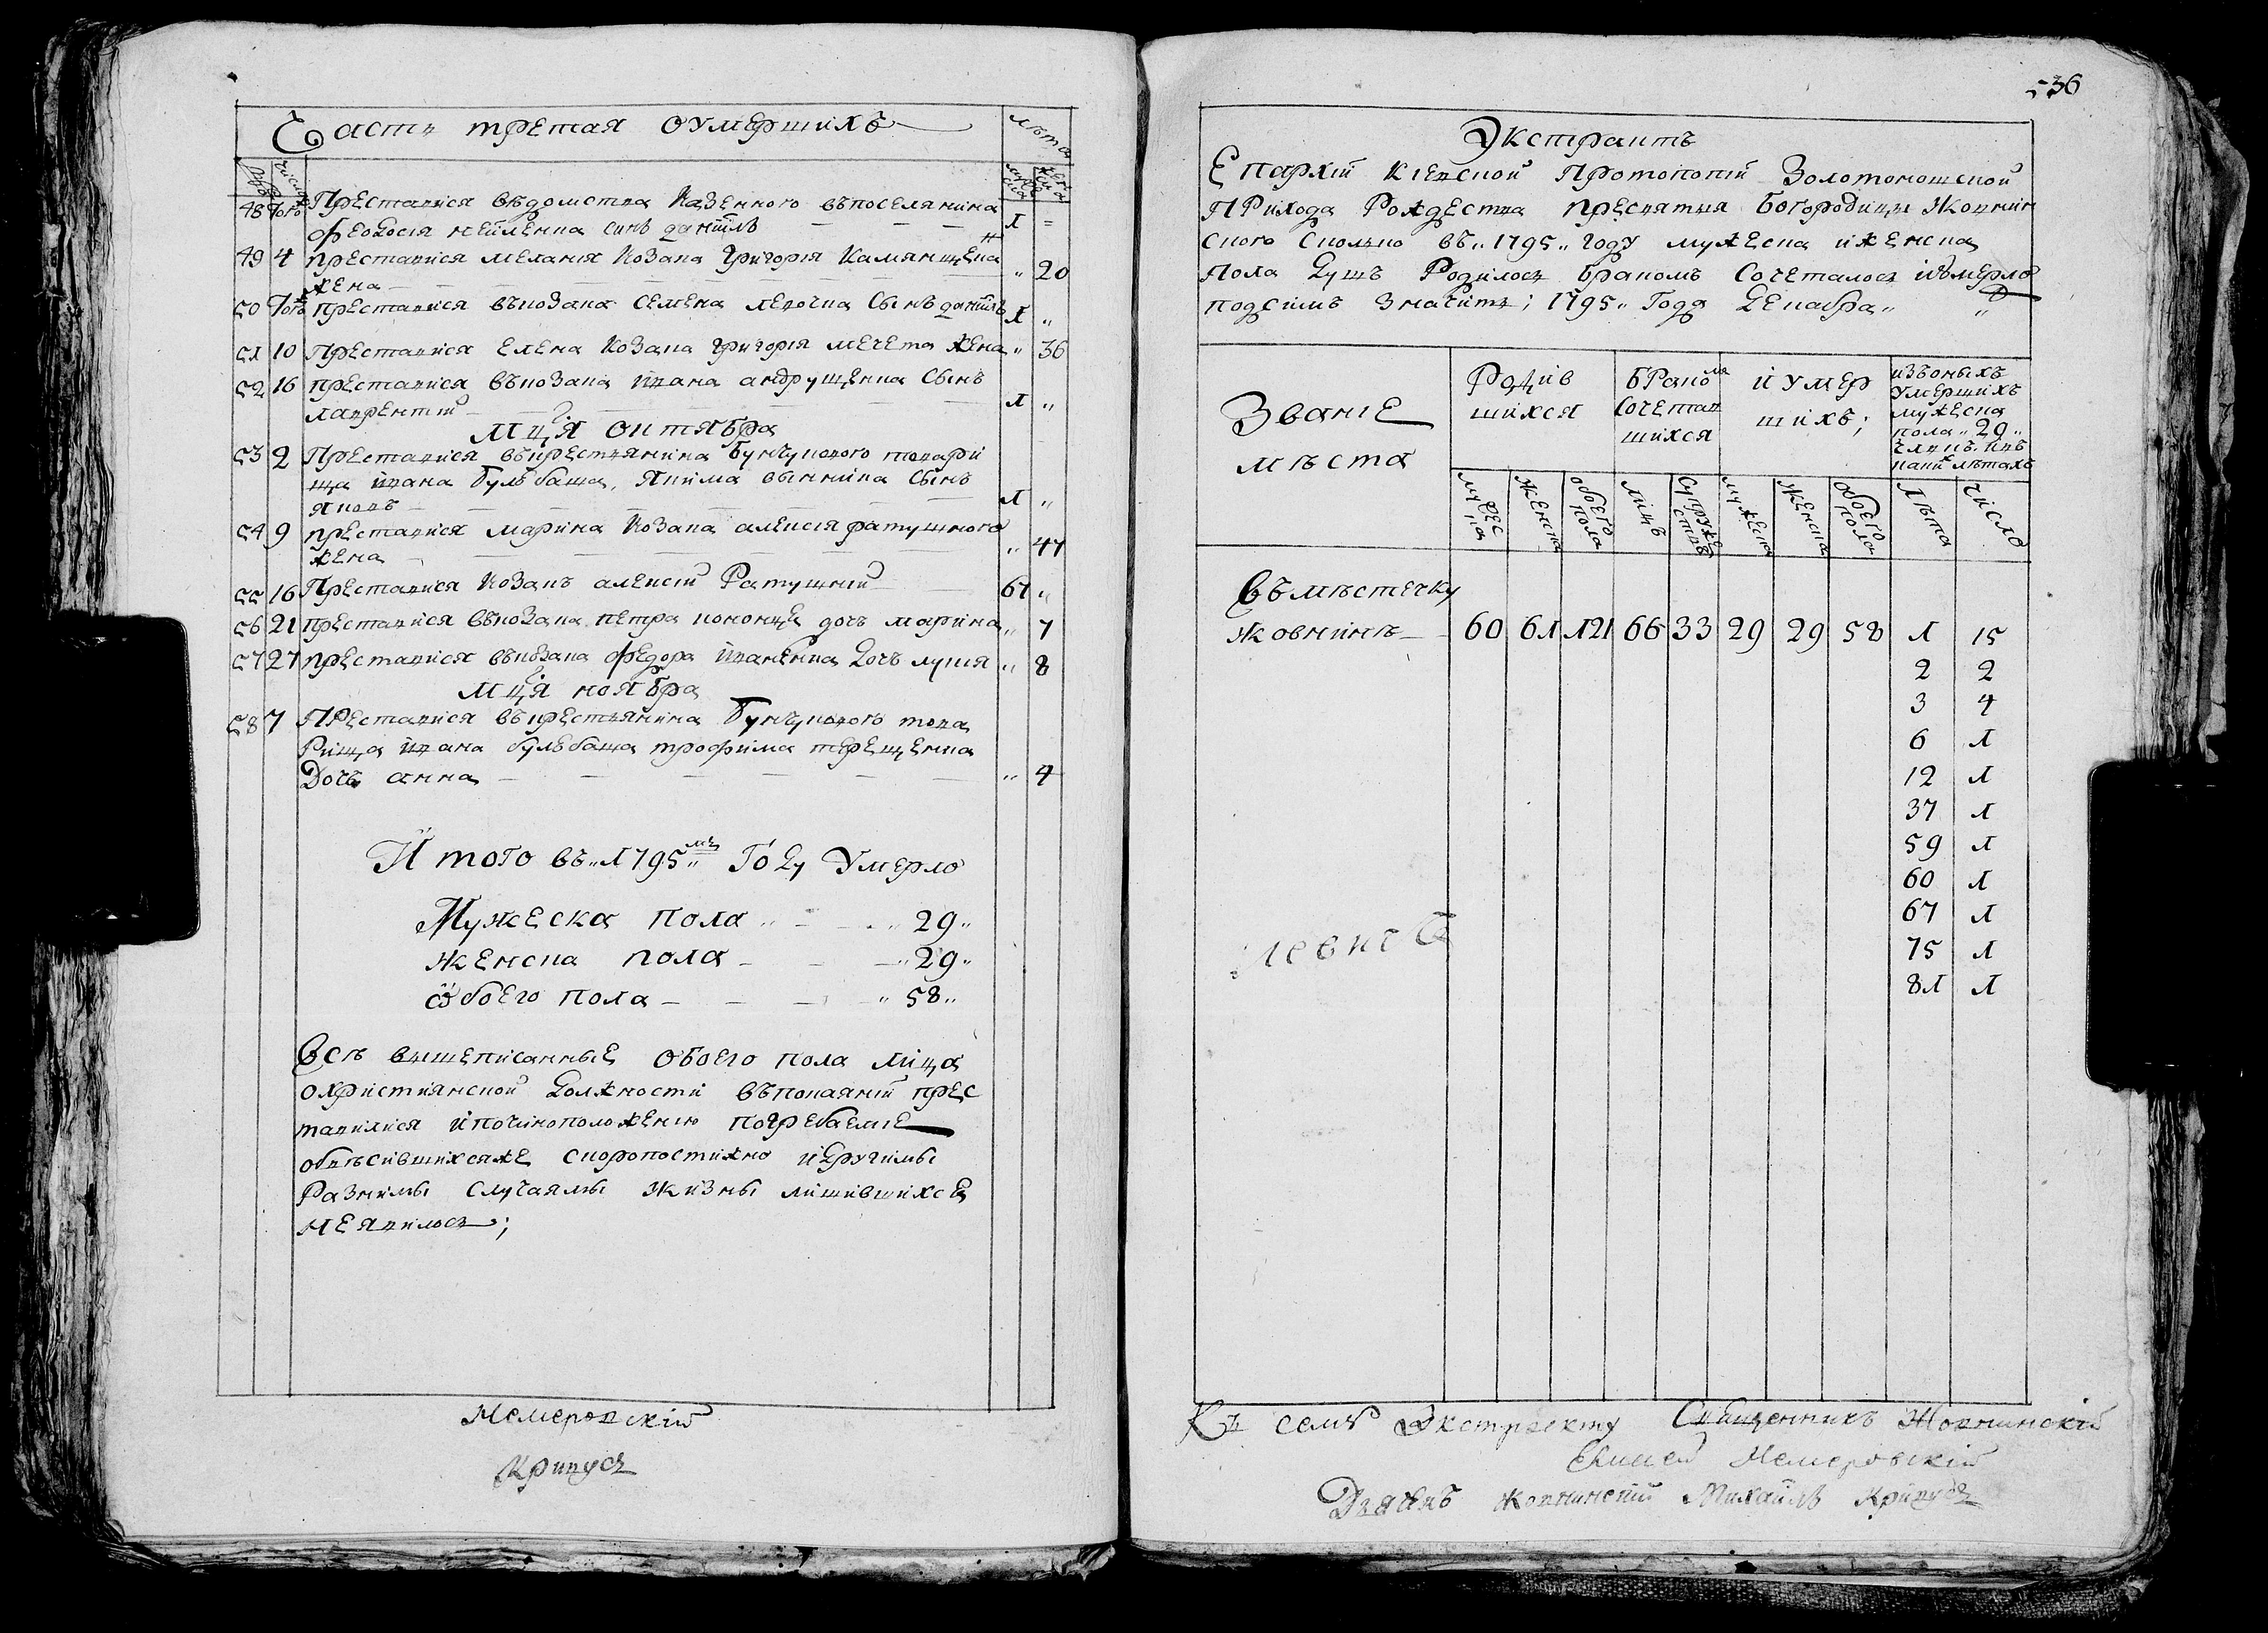 Часть третая оумершихъ
Лѣта
число
мужеска
женска
48 того Преставися вѣдомства Казенного въпоселянина
Феодосія сынъ даниїлъ 1 =
49 4 преставися меланія Козака Григорія Камянщенка
жена „ 20
50 того преставися въкозака семена сынъ даниїлъ 1 „
51 10 Преставися елена козака григорія мечета жена „ 36
52 16 преставися въкозака ивана андрущенка Сынъ
лаврентий 1 „
Мця октября
53 2 Преставися въкрестянина бунчукового товари
ща ивана бульбаша, Якима сынъ
яковъ 1 „
54 9 преставися марина козака алексія ратушного
жена „ 47
55 16 Преставися козакъ алексій Ратушній 67 „
56 21 преставися въкозака петра дочь марина „ 7
57 27 преставися въкозака федора иваненка дочь „ 8
Мця ноября
58 7 Преставися въкрестянина бунчукового това
рища ивана бульбаша трофима терещенка
Дочь анна „ 4
Итого въ „1795„ мъ Году Умерло
Мужеска пола „29„
женска пола „29„
Обоего пола „58„
Всѣ вышеписанные обоего пола лица
охристиянской должности въпокаянии прес
тавилися ипочиноположению погребаемие
обвѣсившихсяже скоропостижно идругимы
Разнимы случаямы жизны лишившихся
неявилось;
Немеровскій
Кривусъ
536
Экстрактъ
Епархіи киевской Протопопіи Золотоношской
Прихода Рождества пресвятия богородици Жовнин
ского сколько въ „1795„ году мужеска иженска
пола душъ Родилось бракомъ Сочеталось иумерло
подсимъ значитъ; 1795„ Года декабря „ „
Званіе
мѣста
Родив
шихся
бракомъ
Сочетав
шихся
и умер
шихъ;
изъоныхъ
умершихъ
мужеска
пола „29„
лѣтахъ
мужеска
женска
обоего пола
лицъ
супружествъ
мужеска
женска
обоего пола
Лѣта
число
Въмѣстечку
Жовнинѣ 60 61 121 66 33 29 29 58 1 15
2 2
3 4
6 1
12 1
37 1
59 1
60 1
67 1
75 1
81 1
Къ сему Экстракту Священникъ Жовнинскій
Немеровскій
Дьякъ жовнинскій Михаилъ Кривусъ